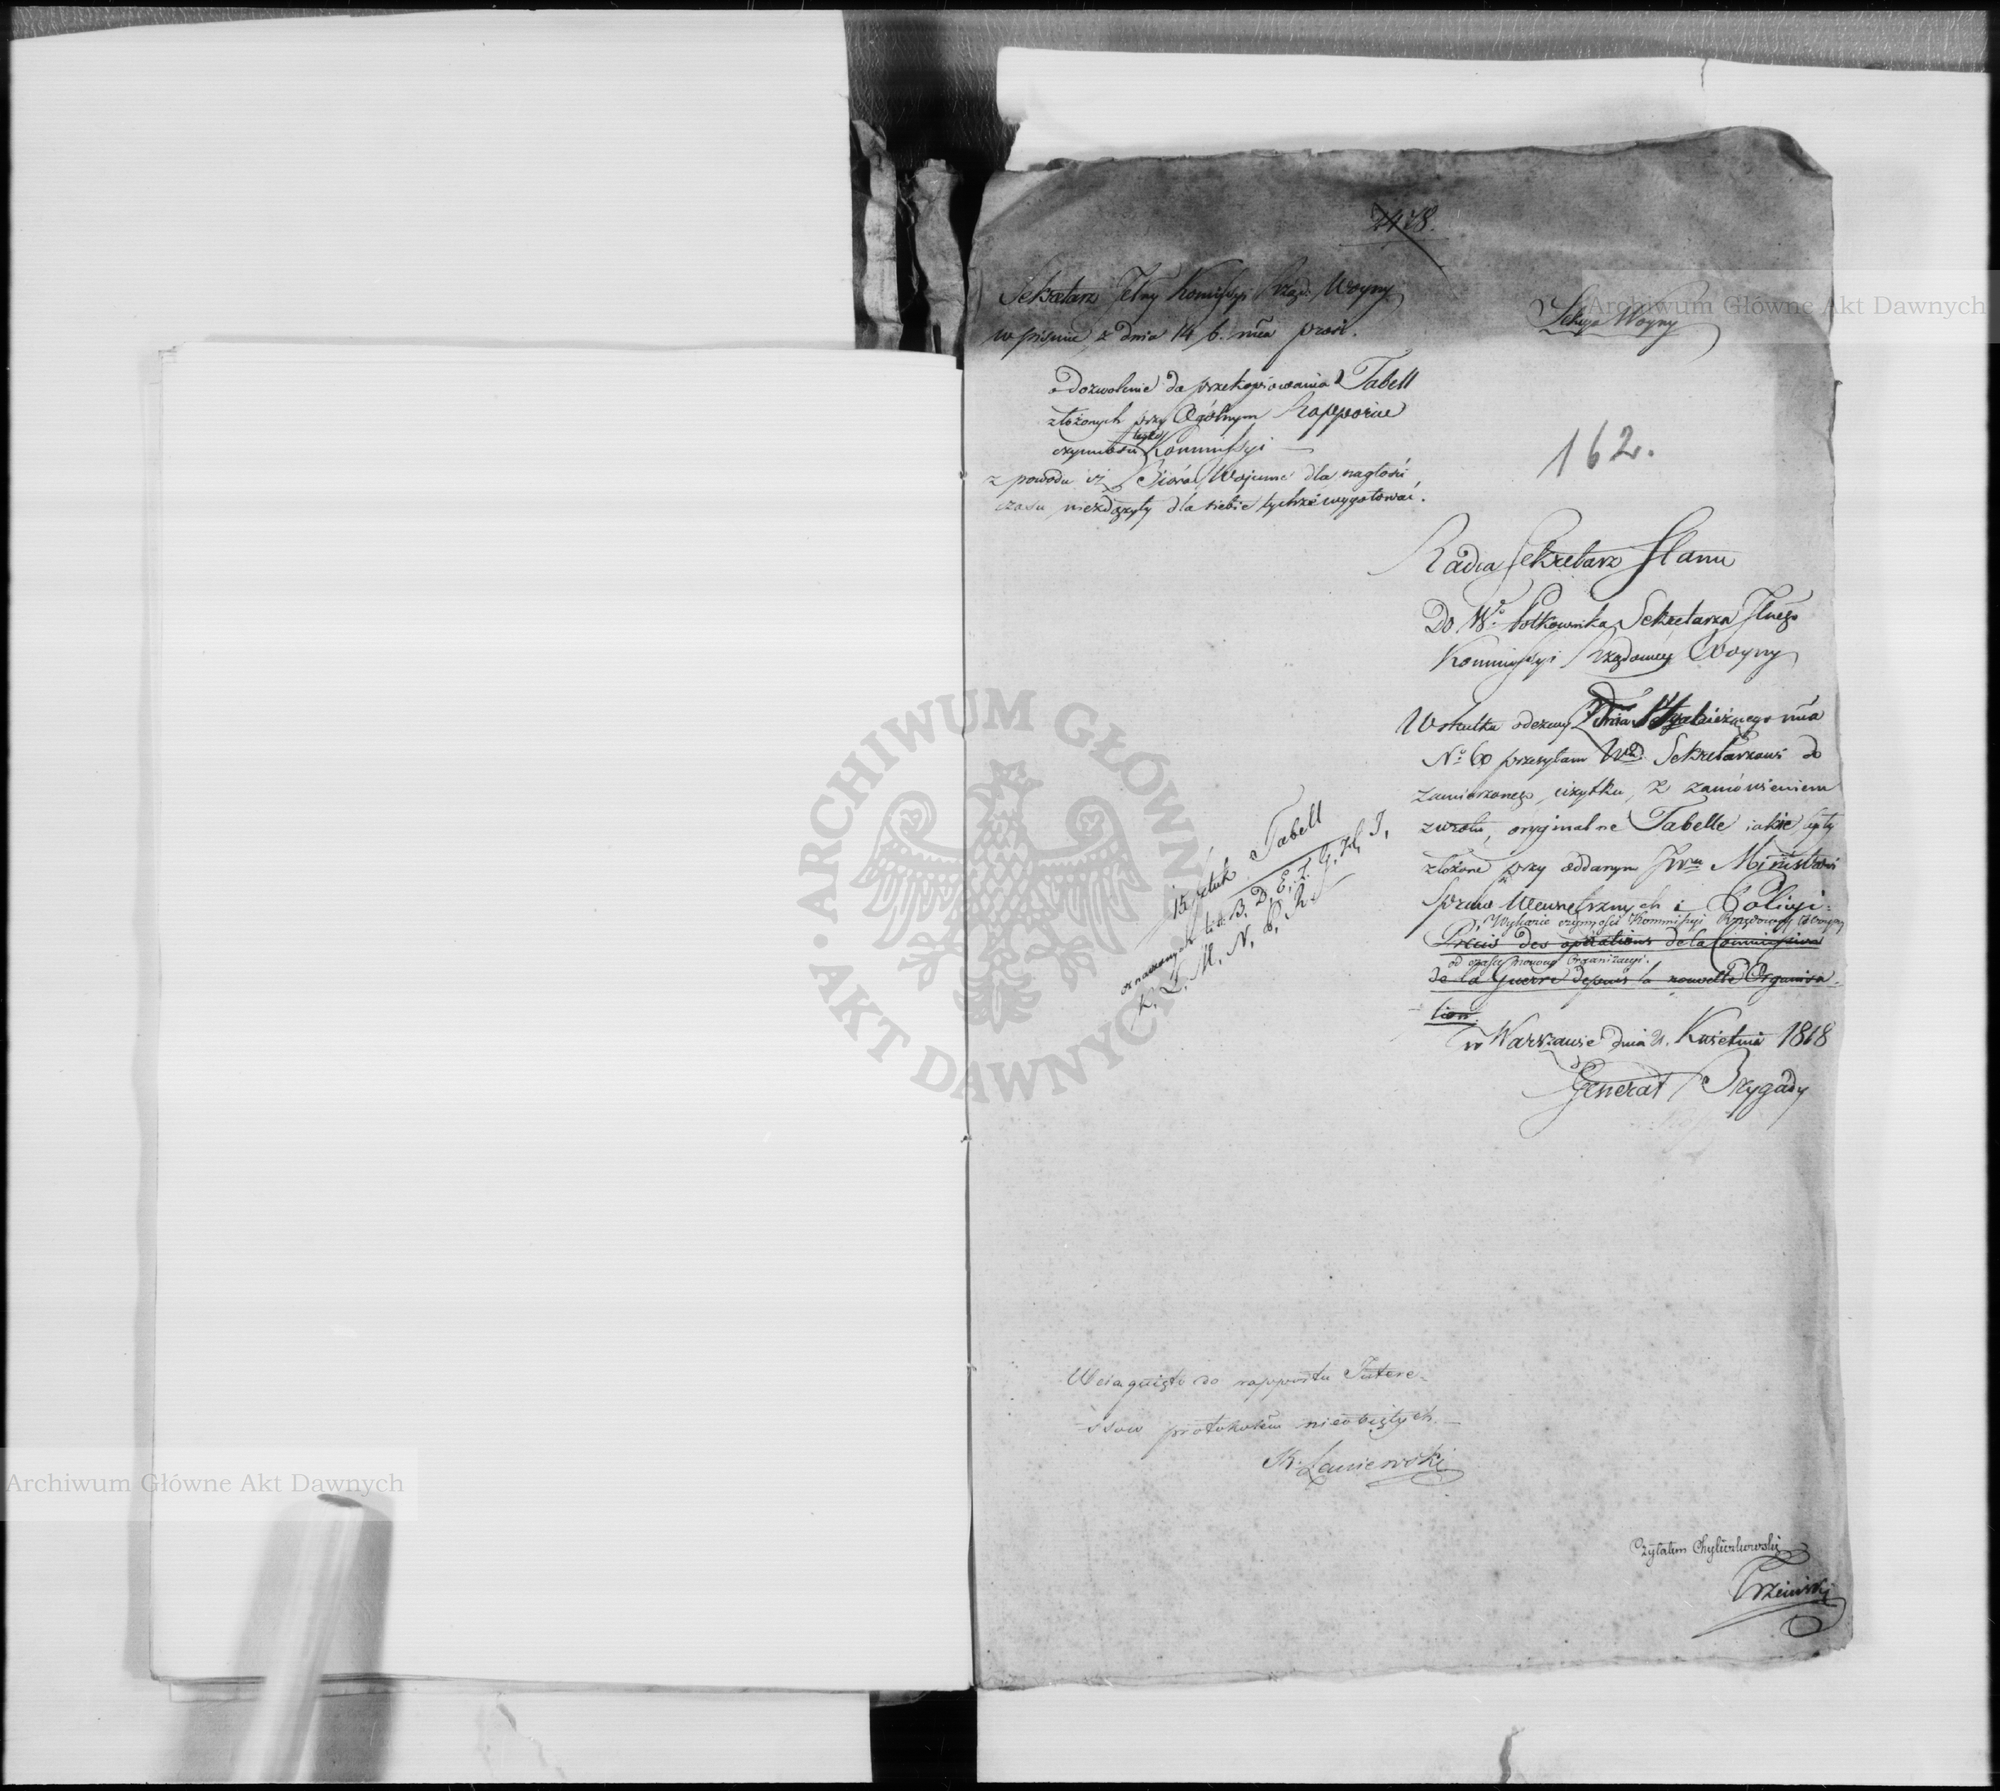 2478.
Sekretarz Jelny Kommissyi Rząd. Woyny
w pismie z dnia 14 b. mca prosi.
o dozwolenie do przekopiowania Tabell
złożonych przy Ogólnym Rapporcie
czynności tegoż Kommissyi —
z powodu iż Bióra Wojenne dla nagłości
czasu niezdążyły dla siebie tychże wygotować.
Sekcya Woyny
162.
Radca Sekretarz Stanu
Do Wo Półkownika Sekretarza Jlnego
Kommissyi Rządowey Woyny
W skutku odezwy z dnia 14 teraźnieyszego mca
No 60 przesyłam Wmu Sekretarzowi do
zamierzonego użytku, z zamówieniem
zwrotu, oryginalne Tabelle iakie były
złożone przy oddanym JWmu Ministrowi
Spraw Wewnętrznych i Policyi
Wykazie czynności Kommissyi Rządowey Woyny
Précis des opérations de la Commission
od czasu nowey Organizacyi.
de la Guerre depuis la nouvelle Organisa-
tion.
w Warszawie dnia 21. Kwietnia 1818
Generał Brygady
15 sztuk Tabell
oznaczonych lit. B. D. E. F. G. H. J.
K. L. M. N. P. R.
Wciągnięto do rapportu Intere-
ssow protokołem nieobiętych —
Czytałem Chyliczkowski
Archiwum Główne Akt Dawnych
Archiwum Główne Akt Dawnych
ARCHIWUM GŁÓWNE AKT DAWNYCH